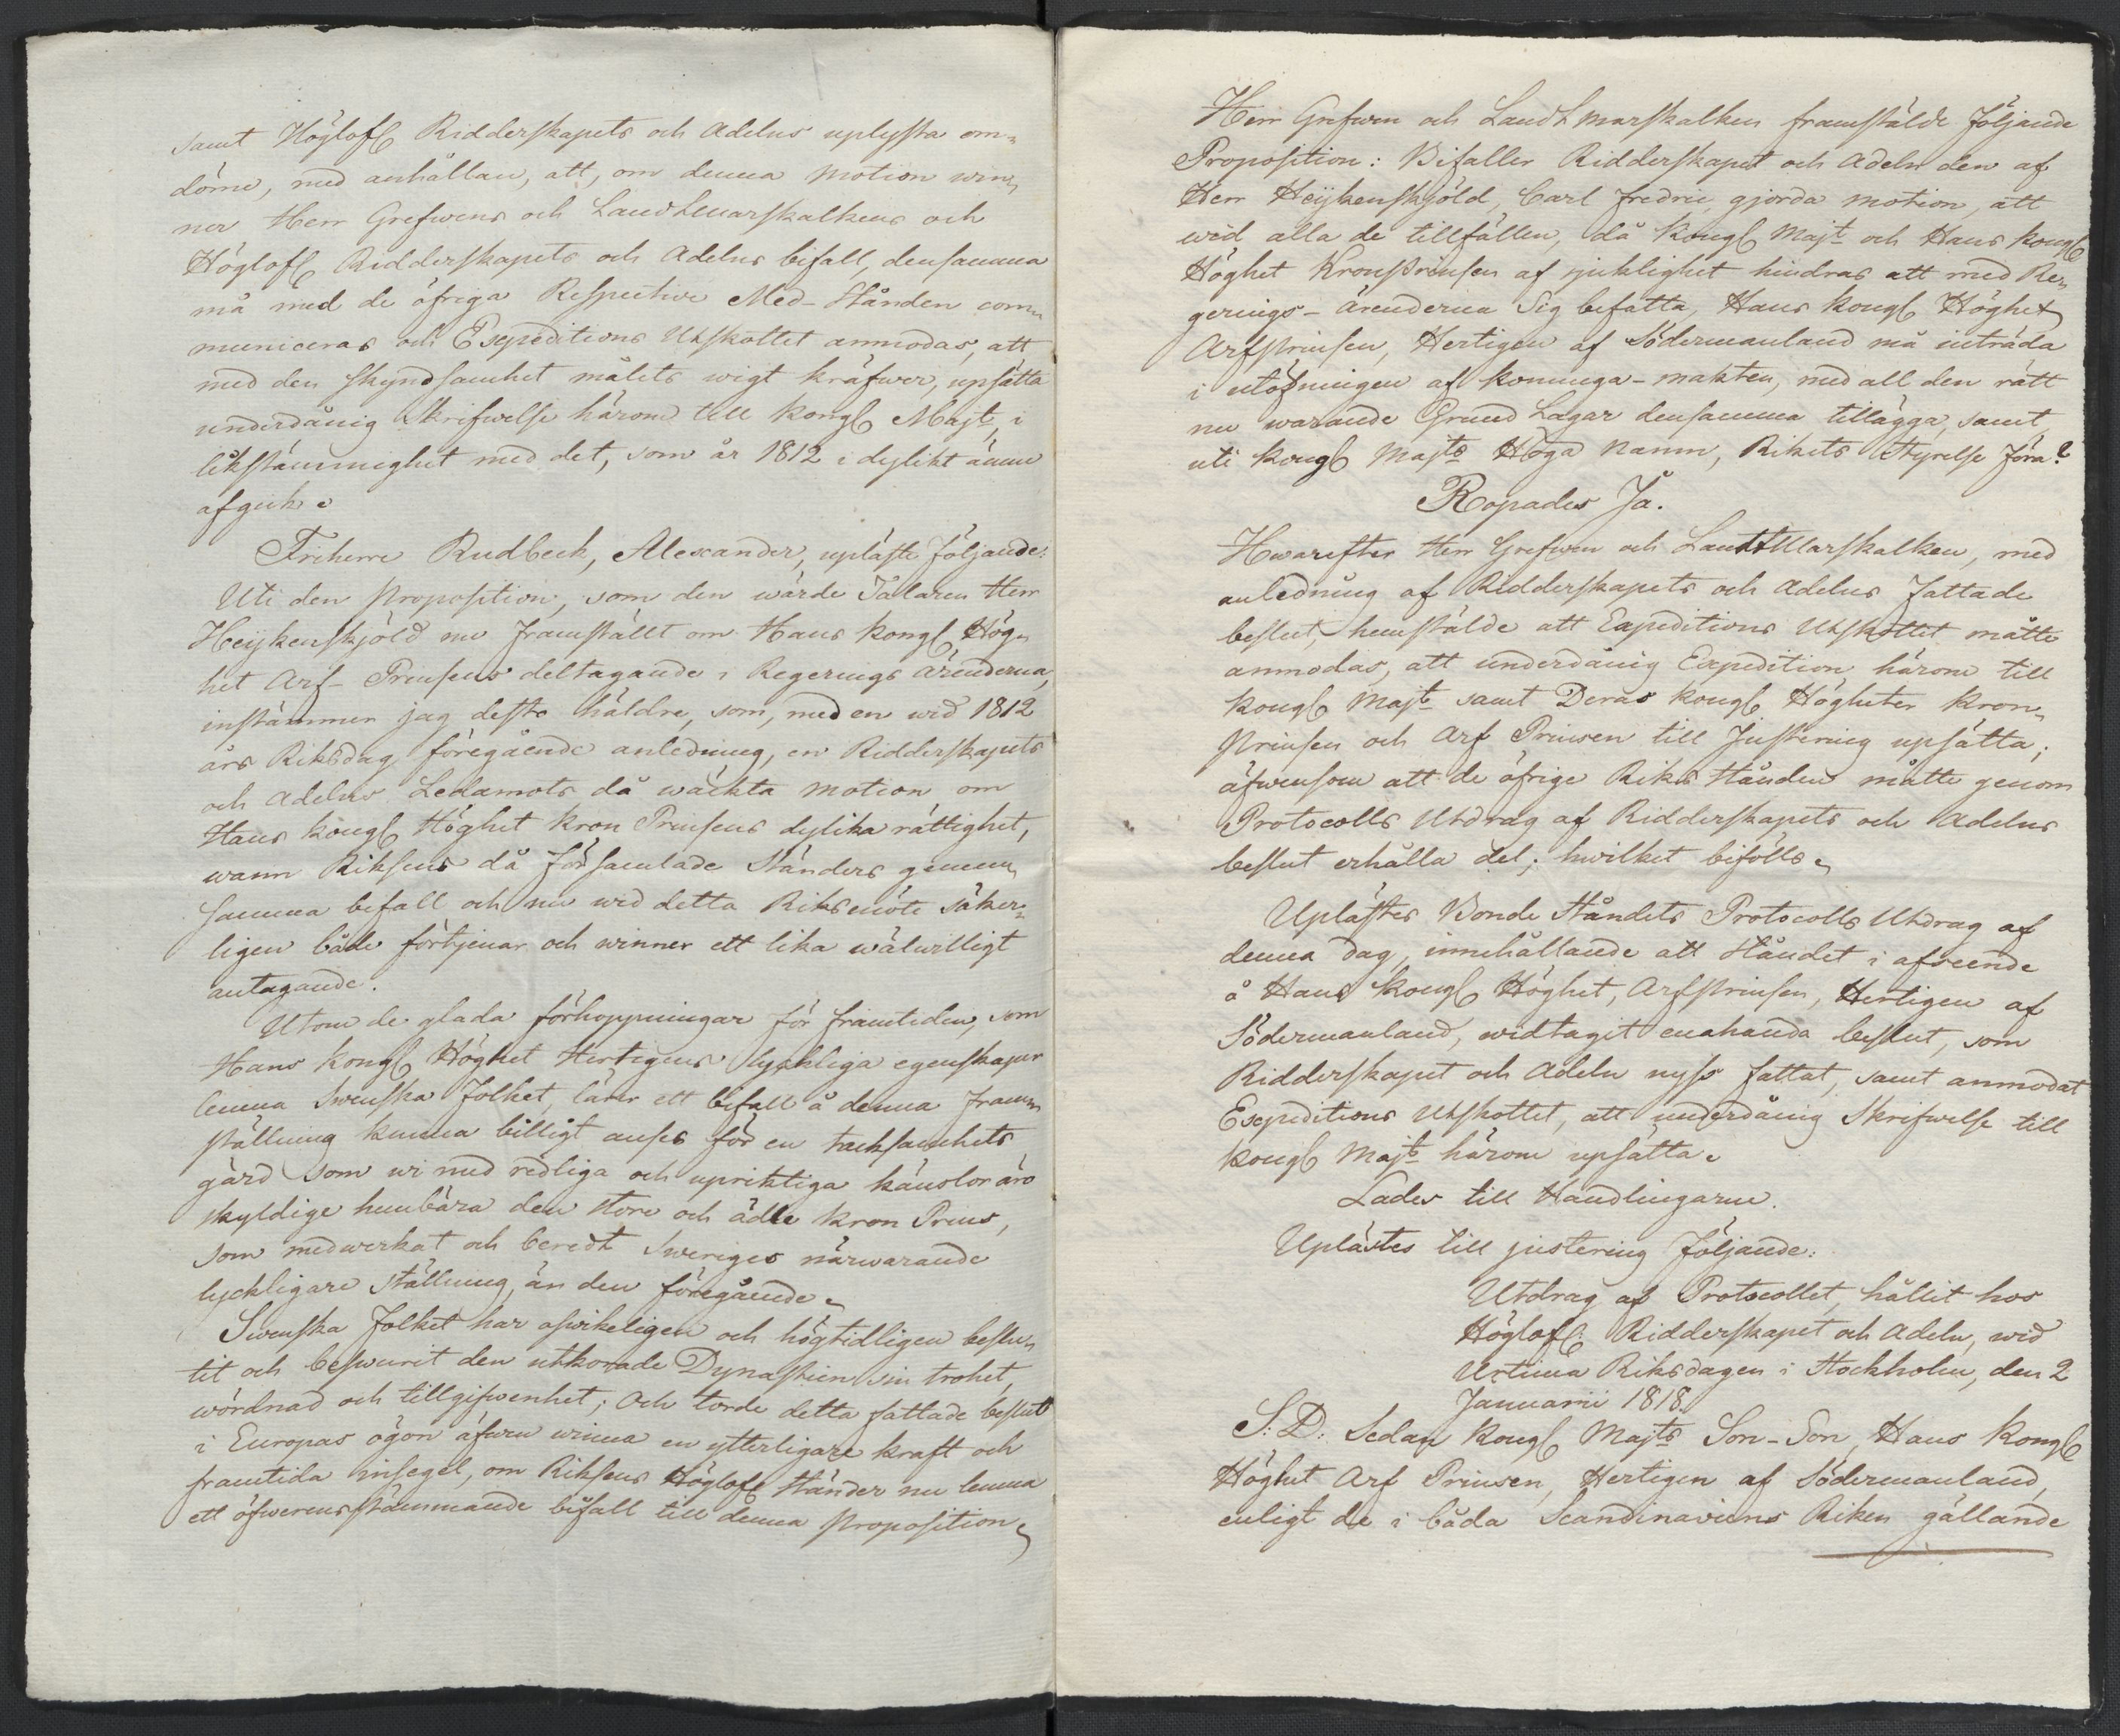 samt Höglofl Ridderskapets och Adelns uplysta om-
döme, med anhållan, att, om denna motion win-
ner Herr Grefwens och Landtmarskalkens och
Höglofl Ridderskapets och Adelns bifall, densamma
må med de öfriga Respective Med-Stånden com-
municeras och Expeditions Utskottet anmodas, att
med den skyndsamhet målets wigt kräfwer, upsätta
underdånig Skrifwelse härom till Kongl Majt, i
likstämmighet med det, som år 1812 i dylikt ämne
afgick.
Friherre Rudbeck, Alexander, upläste följande:
Uti den proposition, som den wärde Talaren Herr
Heijkenskjöld nu framställt om Hans Kongl Hög-
het Arf-Prinsens deltagande i Regerings ärenderna,
instämmer jag desto häldre, som, med en wid 1812
års Riksdag föregående anledning, en Ridderskapets
och Adelns Ledamots då wäckta motion om
Hans Kongl Höghet Kron Prinsens dylika rättighet,
wann Riksens då församlade Ständers gemen-
samma bifall och nu wid detta Riksmöte säker-
ligen både förtjenar och winner ett lika wälwilligt
antagande.
Utom de glada förhoppningar för framtiden, som
Hans Kongl Höghet Hertigens lyckliga egenskaper
lemna Swenska Folket, lärer ett bifall å denna fram-
ställning kunna billigt anses för en tacksamhets
gärd som wi med redliga och upriktiga känslor äro
skyldige hembära den store och ädle Kron Prins,
som medwerkat och beredt Sweriges närwarande
lyckligare ställning, än den föregående.
Swenska Folket har oswikeligen och högtidligen beslu-
tit och beswurit den utkorade Dynastien sin trohet,
wördnad och tillgifwenhet; Och torde detta fattade beslut
i Europas ögon äfwen winna en ytterligare kraft och
framtida insegel, om Riksens Höglofl Ständer nu lemna
ett öfwerensstämmande bifall till denna proposition.
Herr Grefwen och Landtmarskalken framstälde följande
Proposition: Bifaller Ridderskapet och Adeln den af
Herr Heijkenskjöld, Carl Fredric, gjorda motion, att
wid alla de tillfällen, då Kongl Majt och Hans Kongl
Höghet Kronprinsen af sjuklighet hindras att med Re-
gerings-ärenderna Sig befatta, Hans Kongl Höghet
Arfprinsen, Hertigen af Södermanland må inträda
i utöfningen af konunga-makten, med all den rätt
nu warande Grund Lagar densamma tillägga, samt
uti Kongl Majts Höga Namn, Rikets Styrelse föra?
Ropades Ja.
Hwarefter Herr Grefwen och Landtmarskalken, med
anledning af Ridderskapets och Adelns fattade
beslut, hemstälde att Expeditions Utskottet måtte
anmodas, att underdånig Expedition, härom till
Kongl Majt samt Deras Kongl Högheter Kron-
prinsen och Arf Prinsen till Justering upsätta;
äfwensom att de öfrige Riks Stånden måtte genom
Protocolls Utdrag af Ridderskapets och Adelns
beslut erhålla del; hwilket bifölls.
Uplästes Bonde Ståndets Protocolls Utdrag af
denna dag, innehållande att Ståndet i afseende
å Hans Kongl Höghet, Arfprinsen, Hertigen af
Södermanland, widtagit enahanda beslut, som
Ridderskapet och Adeln nyss fattat, samt anmodat
Expeditions Utskottet, att underdånig Skrifwelse till
Kongl Majt härom upsätta.
Lades till Handlingarne.
Uplästes till justering följande:
Utdrag af Protocollet, hållit hos
Höglofl. Ridderskapet och Adeln, wid
Urtima Riksdagen i Stockholm, den 2
Januarii 1818.
S: D: Sedan Kongl Majts Son-Son, Hans Kongl
Höghet Arf Prinsen, Hertigen af Södermanland,
enligt de i båda Scandinaviens Riken gällande